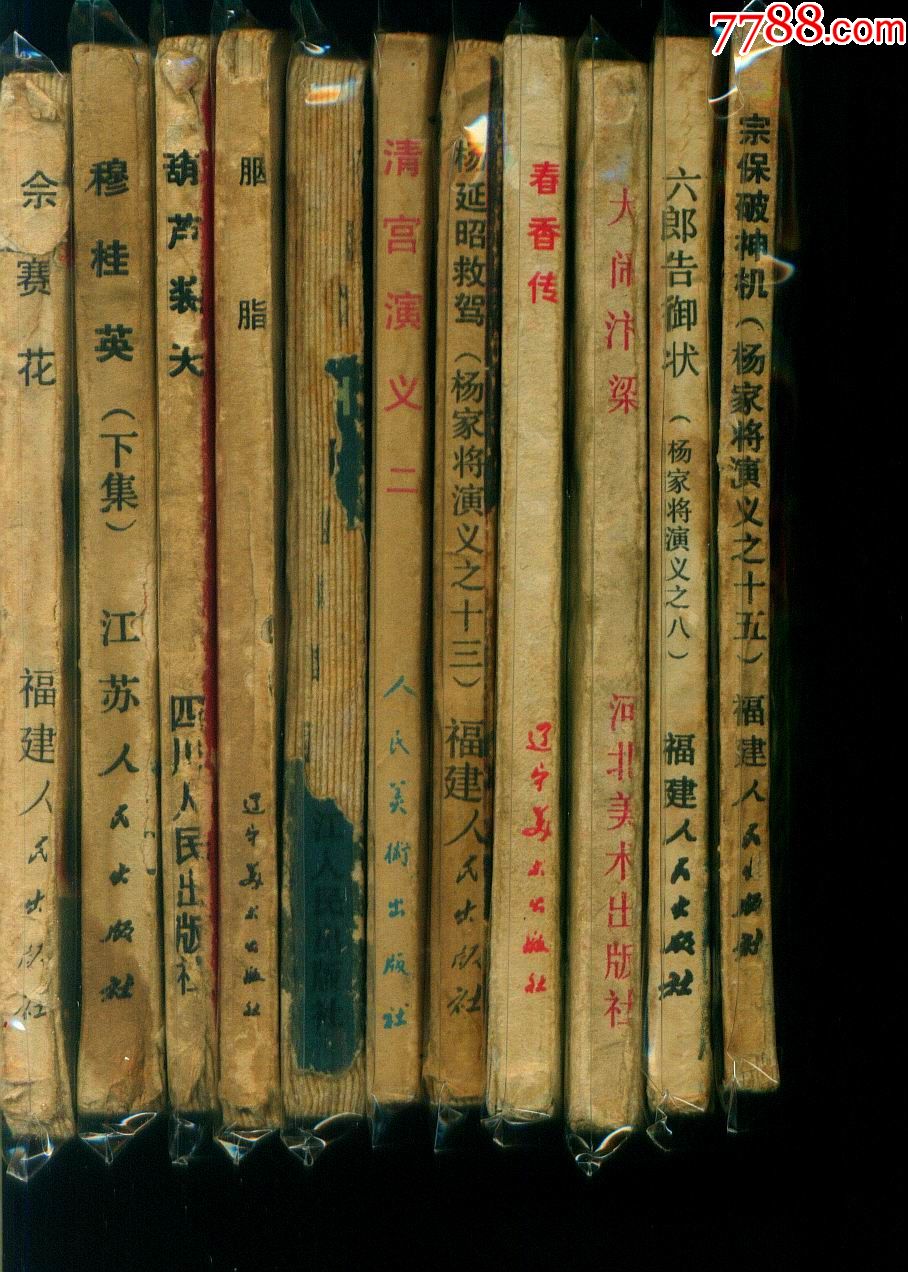 7788.com
佘赛花 福建人民出版社
穆桂英(下集) 江苏人民出版社
葫芦装天 四川人民出版社
胭脂 辽宁美术出版社
江人民出版社
清宫演义二 人民美術出版社
杨延昭救驾(杨家将演义之十三) 福建人民出版社
春香传 辽宁美术出版社
大闹汴梁 河北美术出版社
六郎告御状(杨家将演义之八) 福建人民出版社
宗保破神机(杨家将演义之十五) 福建人民出版社